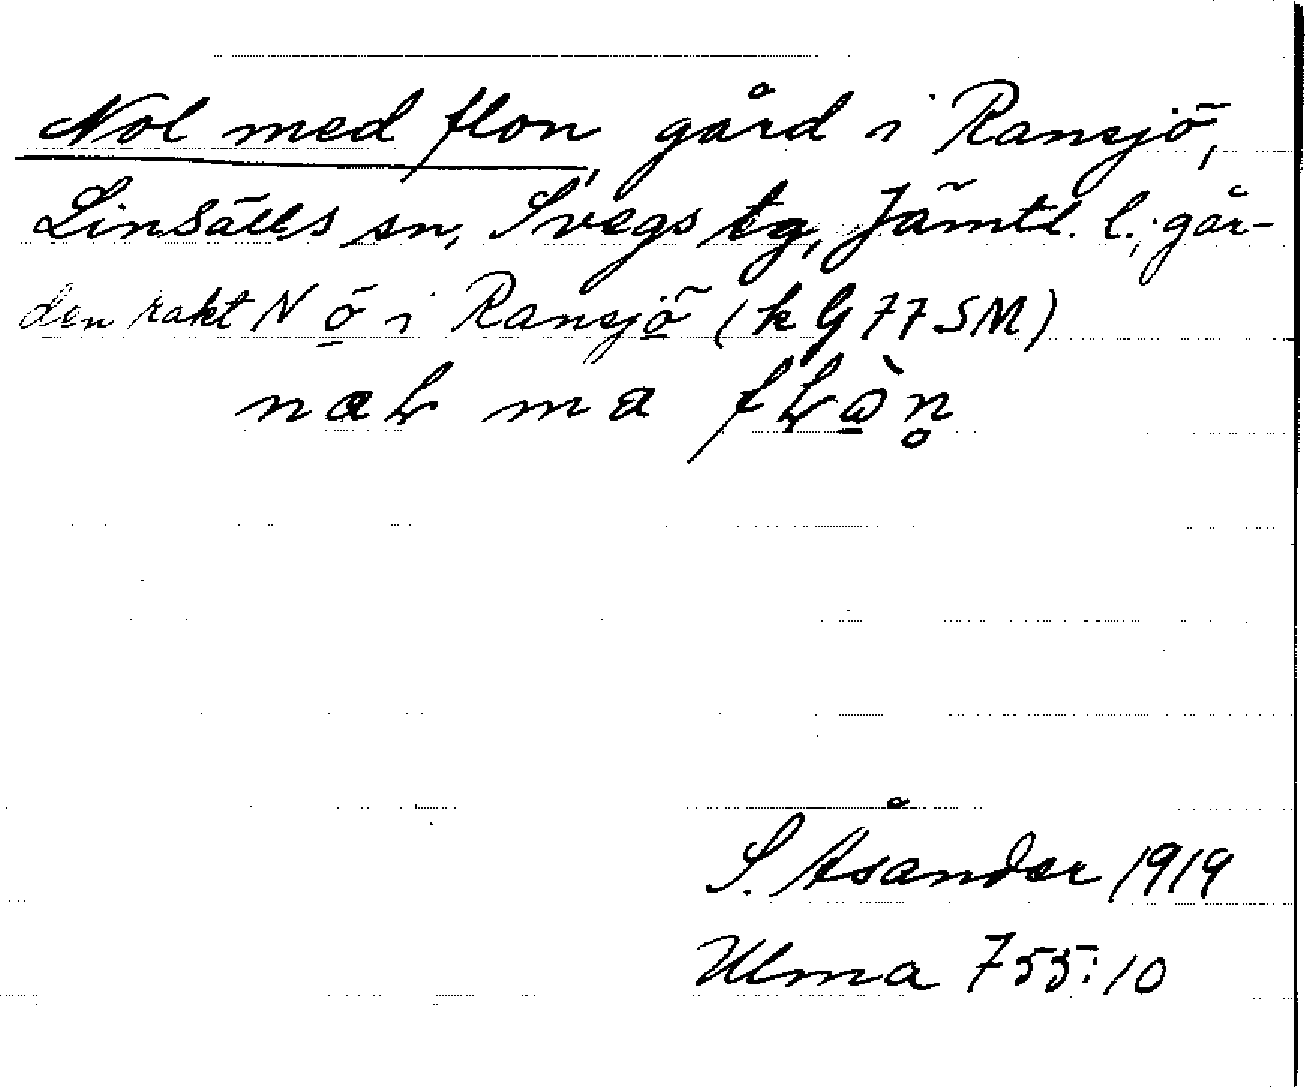 Nol med flon, gård i Ransjö,
Linsälls sn, Svegs tg, Jämtl. l.; går-
den rakt N ö i Ransjö (k G 77 SM)
S. Åsander 1919
Ulma 755:10